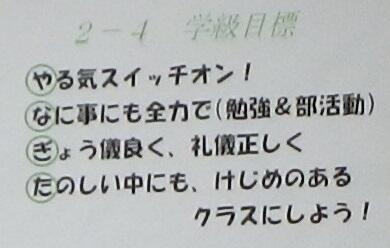 2－4　学級目標
やる気スイッチオン！
なに事にも全力で(勉強＆部活動)
ぎょう儀良く、礼儀正しく
たのしい中にも、けじめのある
クラスにしよう！